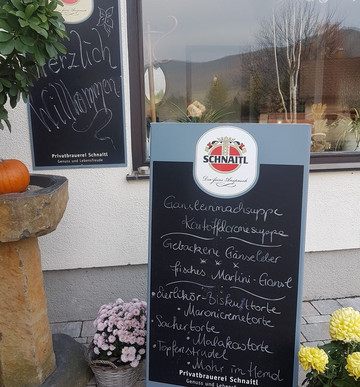 Herzlich
Willkommen
Privatbrauerei Schnaitl
Genuss und Lebensfreude
SCHNAITL
Gansleinmachsuppe
Kartoffelcremesuppe
Gebackene Gänseleber
* * *
frisches Martini-Gansl
• Eierlikör-Biskuittorte
Maronicremetorte
• Sachertorte
• Malakoftorte
• Topfenstrudel
• Mohr im Hemd
Privatbrauerei Schnaitl
Genuss und Lebensfreude